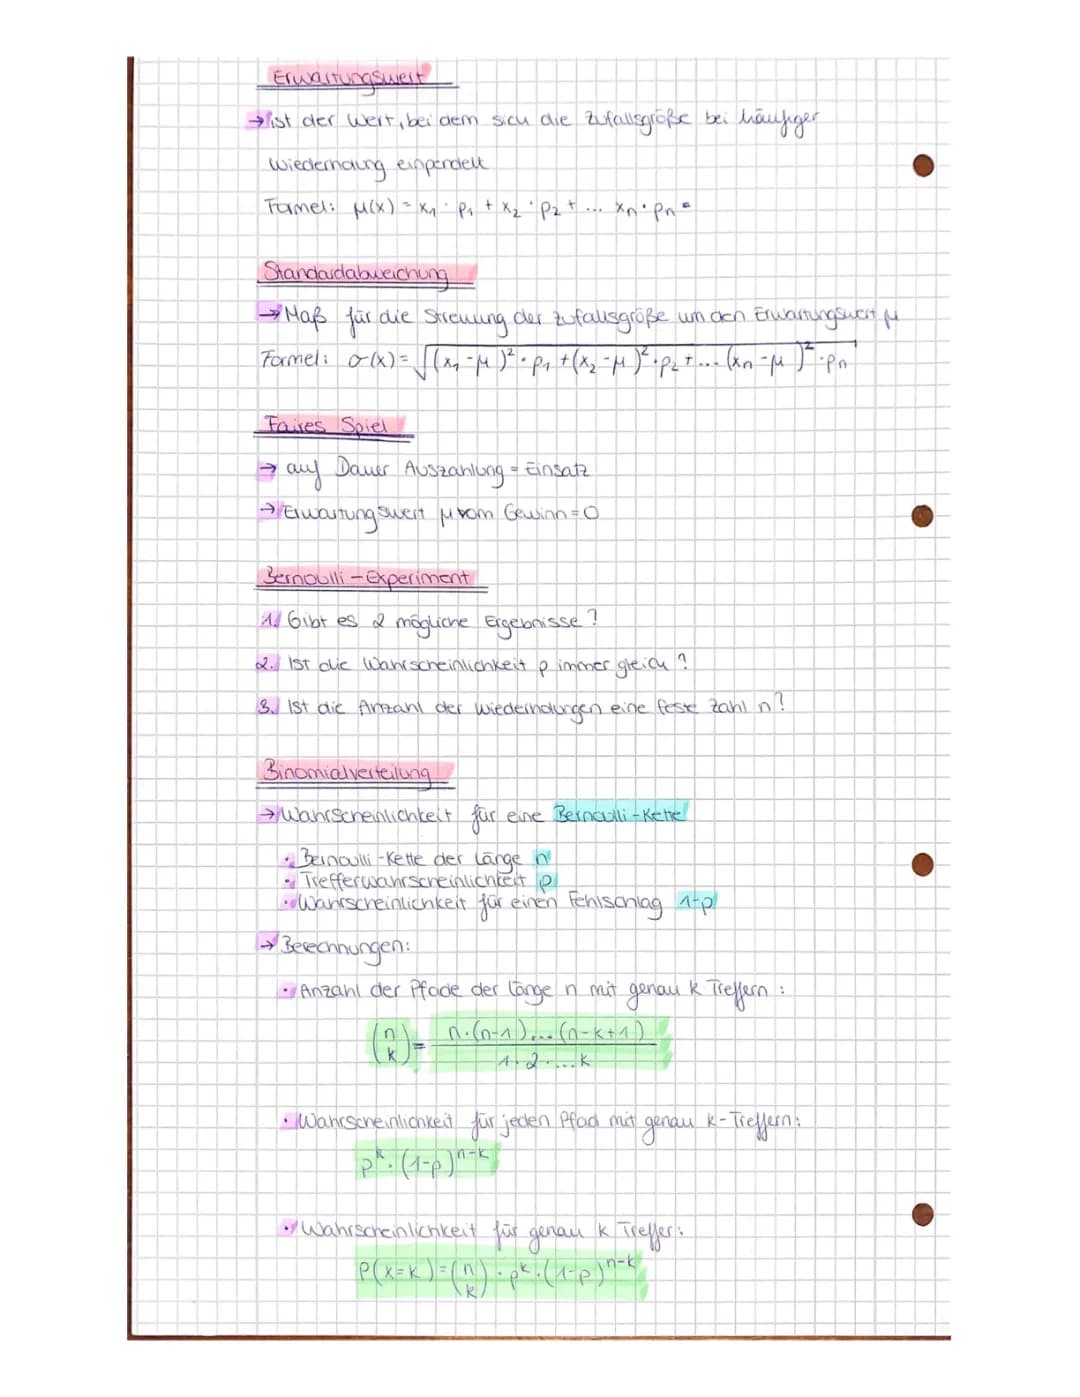 Erwartungswert
→ ist der Wert, bei dem sich die Zufallsgröße bei häufiger
Wiederholung einpendelt
Formel: μ(x) = x₁ · p₁ + x₂ · p₂ + ... xₙ · pₙ =
Standardabweichung
→ Maß für die Streuung der Zufallsgröße um den Erwartungswert μ
Formel: σ(x) = √((x₁ - μ)² · p₁ + (x₂ - μ)² · p₂ + ... (xₙ - μ)² · pₙ
Faires Spiel
→ auf Dauer Auszahlung = Einsatz
→ Erwartungswert μ vom Gewinn = 0
Bernoulli - Experiment
1. Gibt es 2 mögliche Ergebnisse?
2. Ist die Wahrscheinlichkeit p immer gleich?
3. Ist die Anzahl der Wiederholungen eine feste Zahl n?
Binomialverteilung
→ Wahrscheinlichkeit für eine Bernoulli - Kette
· Bernoulli - Kette der Länge n
· Trefferwahrscheinlichkeit p
· Wahrscheinlichkeit für einen Fehlschlag 1-p
→ Berechnungen:
· Anzahl der Pfade der Länge n mit genau k Treffern:
(n k) = n·(n-1)...·(n-k+1) / 1·2·...k
· Wahrscheinlichkeit für jeden Pfad mit genau k-Treffern:
pᵏ · (1-p)ⁿ⁻ᵏ
· Wahrscheinlichkeit für genau k Treffer:
P(x=k) = (n k) · pᵏ · (1-p)ⁿ⁻ᵏ